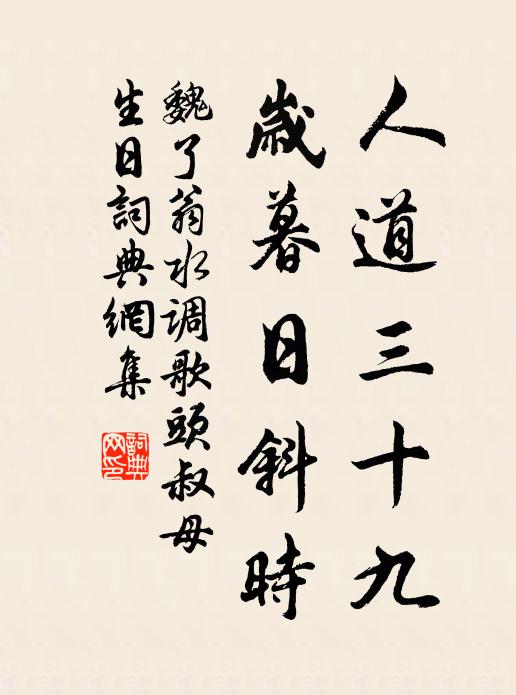 人道三十九
歲暮日斜時
魏了翁水调歌頭叔母
生日詞典網集
詞典
网印